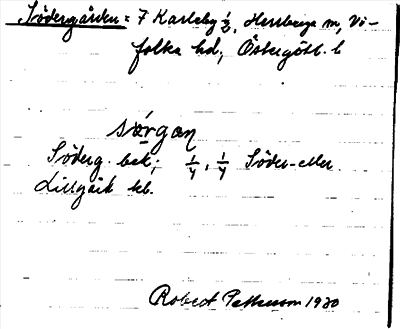 Södergården = 7 Karleby ½, Herrberga m, Vi-
folka hd, Östergötl. l
sǿrgan
Söderg. bek; ¼, ¼ Söder- eller
Lillgårk kb.
Robert Pettersson 1930